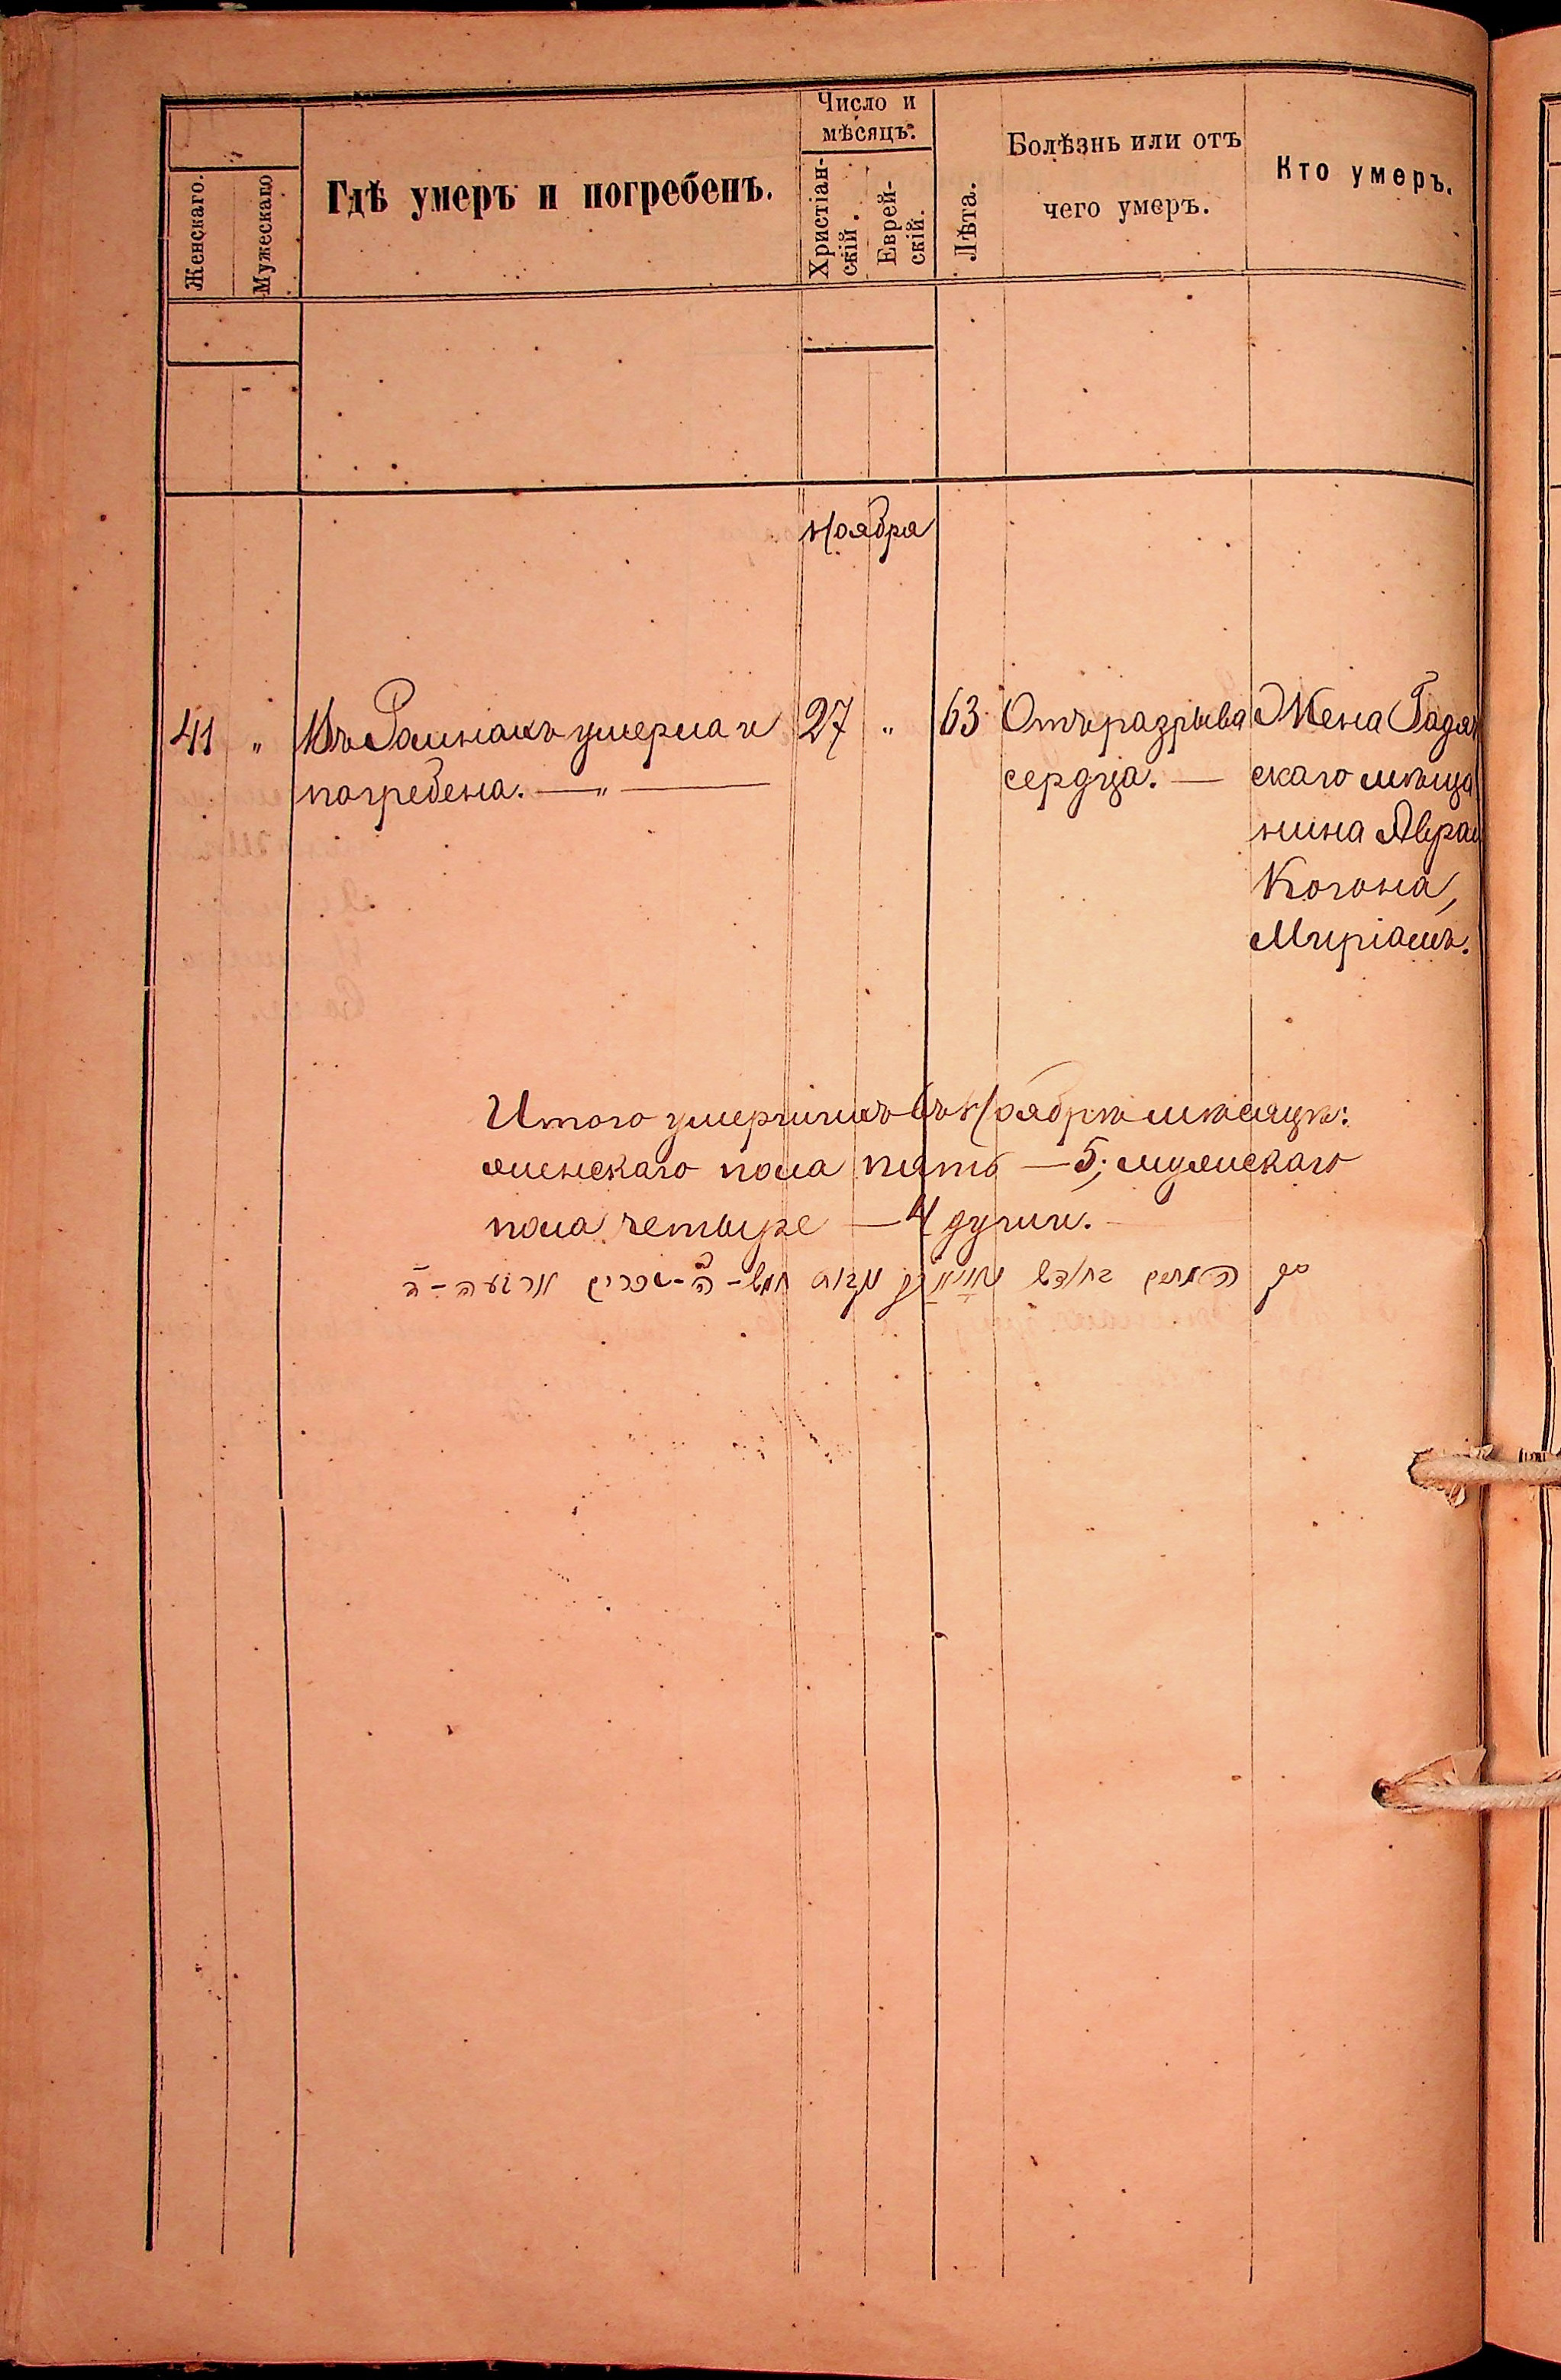 Число и
мѣсяцъ.
Женскаго.
Мужескаго
Гдѣ умеръ и погребенъ.
Христіан-
скій.
Еврей-
скій.
Лѣта.
Болѣзнь или отъ
чего умеръ.
Кто умеръ.
Ноября
41 " Въ Ромнахъ умерла и 27 " 63 Отъ разрыва Жена Гадяч
погребена. — " — сердца. — скаго мѣща
нина Авраа
Когона,
Миріамъ.
Итого умершихъ въ Ноябрѣ мѣсяцѣ:
женскаго пола пять — 5; мужескаго
пола четыре — 4 души.